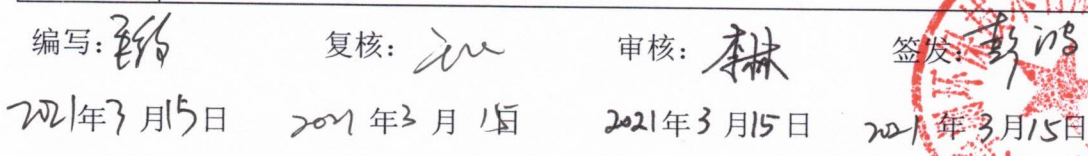 编写： 复核： 审核：李林 签发：彭鸿
2021年3月15日 2021年3月15日 2021年3月15日 2021年3月15日